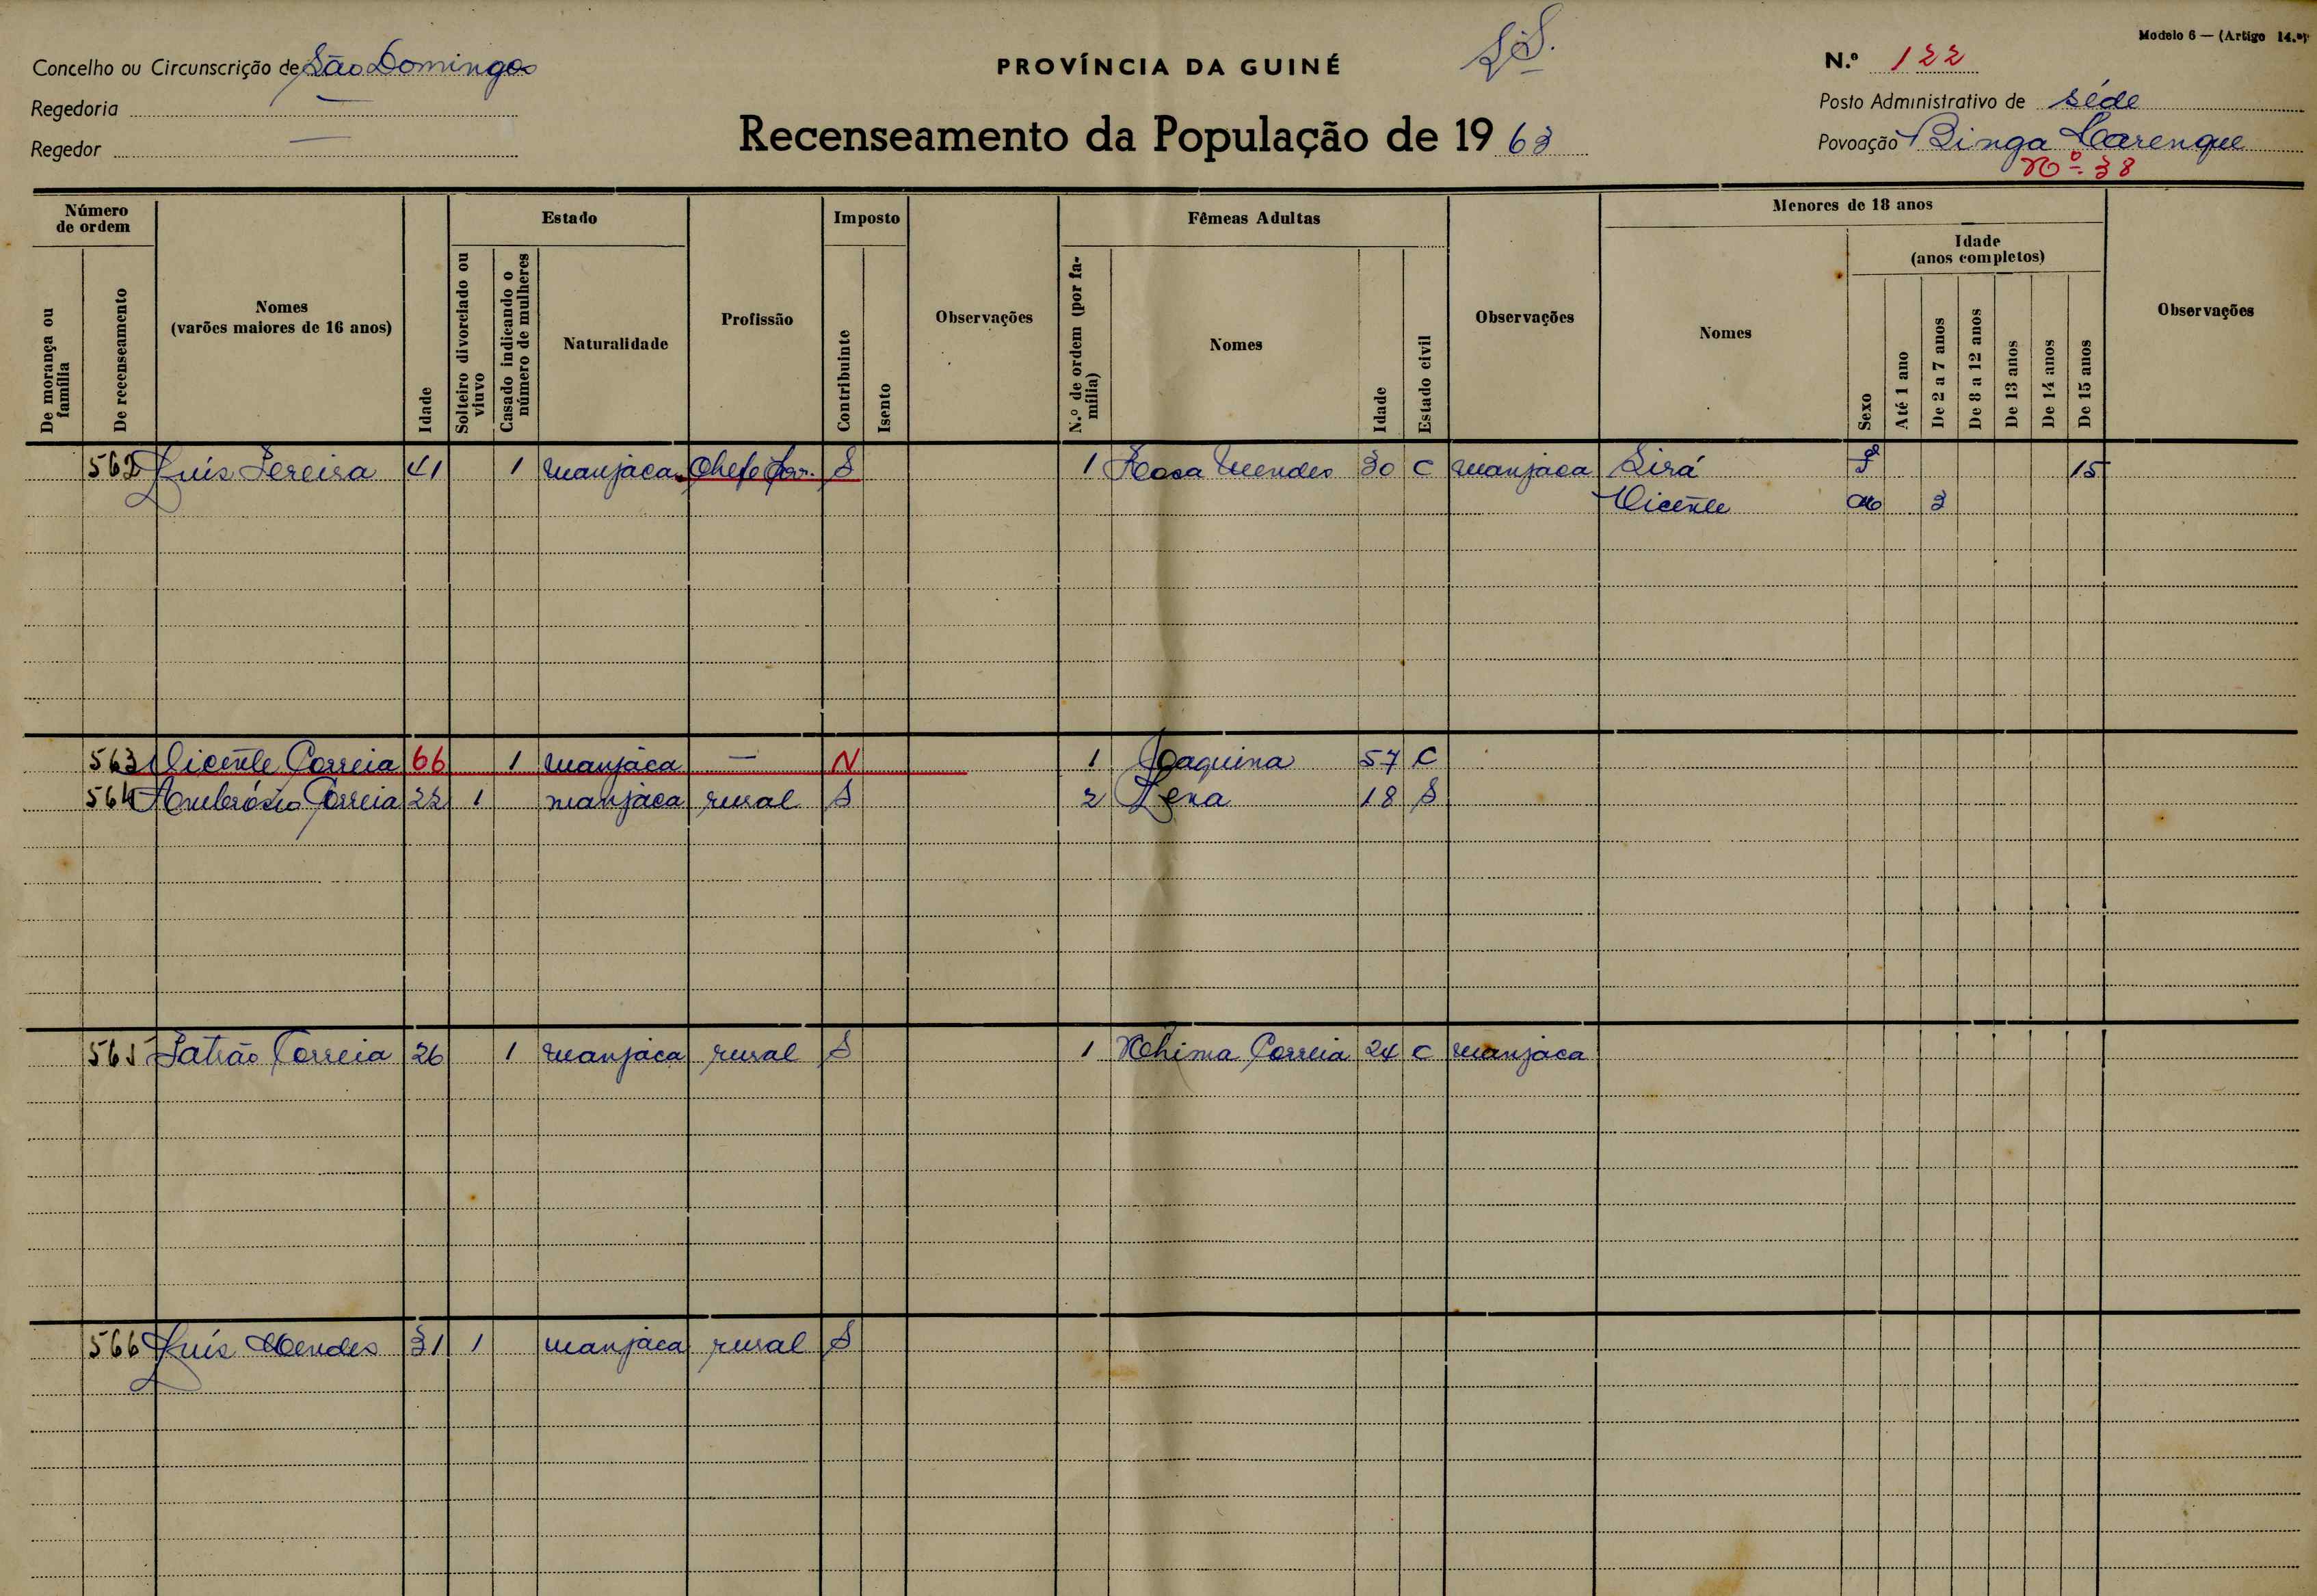 Modelo 6 — (Artigo 14.º)
Concelho ou Circunscrição de São Domingos
PROVÍNCIA DA GUINÉ
N.º 122
Regedoria —
Posto Administrativo de séde
Regedor —
Recenseamento da População de 1963
Povoação Binga
Nº 38
Número de ordem
De morança ou família
De recenseamento
Nomes
(varões maiores de 16 anos)
Idade
Estado
Solteiro divorciado ou viuvo
Casado indicando o número de mulheres
Naturalidade
Profissão
Imposto
Contribuinte
Isento
Observações
Fêmeas Adultas
N.º de ordem (por família)
Nomes
Idade
Estado civil
Observações
Menores de 18 anos
Nomes
Sexo
Idade
(anos completos)
Até 1 ano
De 2 a 7 anos
De 8 a 12 anos
De 13 anos
De 14 anos
De 15 anos
Observações
562 Luís Pereira 41 1 manjaca Chefe S 1 Rosa Mendes 30 C manjaca Sirá F 15
Vicente M 3
563 Vicente Correia 66 1 manjaca — N 1 Joaquina 57 C
564 Ambrósio Correia 22 1 manjaca rural S 2 Lena 18 S
565 Patrão Correia 26 1 manjaca rural S 1 Nhima Correia 24 C manjaca
566 Luís Mendes 31 1 manjaca rural S